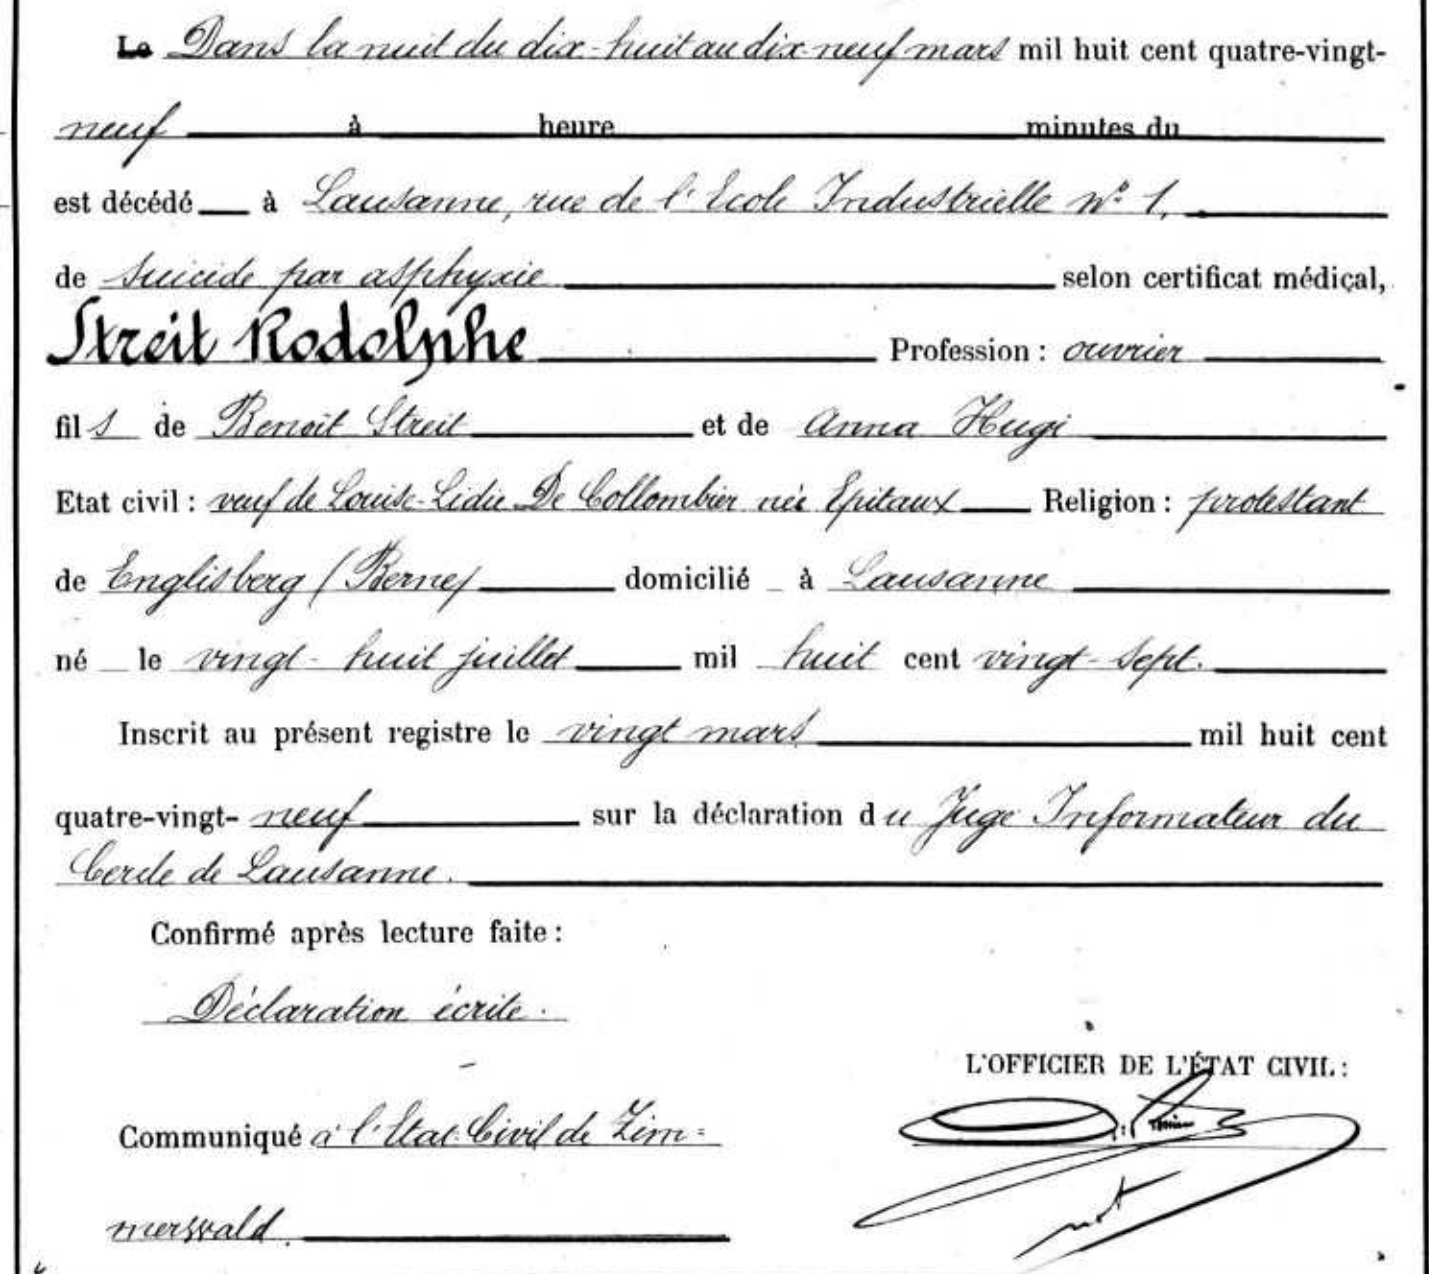 Le Dans la nuit du dix-huit au dix-neuf mars mil huit cent quatre-vingt-
neuf à heure minutes du
est décédé à Lausanne, rue de l'Ecole Industrielle Nº 1,
de suicide par asphyxie selon certificat médical,
Streit Rodolphe Profession : ouvrier
fils de Benoît Streit et de Anna Hugi
Etat civil : veuf de Louise-Lidie De Collombier née Epitaux Religion : protestant
de Englisberg (Berne) domicilié à Lausanne
né le vingt-huit juillet mil huit cent vingt-sept.
Inscrit au présent registre le vingt mars mil huit cent
quatre-vingt-neuf sur la déclaration du Juge Informateur du
Cercle de Lausanne.
Confirmé après lecture faite :
Déclaration écrite.
L'OFFICIER DE L'ÉTAT CIVIL :
Communiqué à l'Etat-Civil de Zim=
merwald.
not